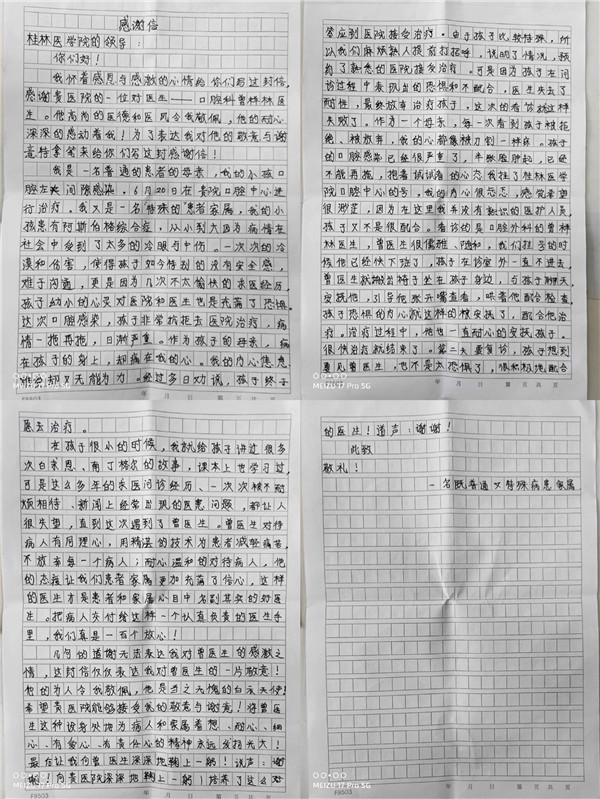 感谢信
桂林医学院的领导：
你们好！
我怀着感恩与感激的心情给你们写这封信，
感谢贵医院的一位好医生——口腔科曾梓林医
生。他高尚的医德和医风令我敬佩，他的耐心
深深的感动着我！为了表达我对他的敬意与谢
意特拿笔来给你们写这封感谢信！
我是一名普通的患者的母亲，我的小孩口
腔左间隙感染，6月20日在贵院口腔中心进
行治疗。我又是一名特殊的患者家属，我的小
孩患有阿斯伯格综合症，从小到大因为病情在
社会中受到了太多的冷眼与中伤。一次次的冷
漠和伤害，使得孩子如今特别的没有安全感，
难于沟通，更是因为几次不太愉快的求医经历，
孩子幼小的心灵对医院和医生也是充满了恐惧。
这次口腔感染，孩子非常抗拒去医院治疗，病
情一拖再拖，日渐严重。作为孩子的母亲，病
在孩子的身上，却痛在我的心。我的内心焦急、
难受却又无能为力。经过多日劝说，孩子终于
答应到医院接受治疗。由于孩子比较特殊，所
以我们麻烦熟人提前打招呼，说明了情况，预
约了熟悉的医院接受治疗。可是因为孩子在问
诊过程中表现出的恐惧和不配合，医生失去了
耐性，最终放弃治疗孩子，这次的看诊就这样
失败了。作为一个母亲，每一次看到孩子被拒
绝、被放弃，我的心都像被刀割一样疼。孩子
的口腔感染已经很严重了，半张脸肿起，已经
不能再拖，抱着试试看的心态我挂了桂林医学
院口腔中心的号，我的内心很忐忑，感觉希望
很渺茫，因为在这里我并没有熟识的医护人员，
孩子又不是很配合。看诊的是口腔外科的曾梓
林医生，曾医生很儒雅、随和，我们挂号的时
候他已经快下班了，孩子在诊室外一直不进去，
曾医生就搬出椅子坐在孩子身边，与孩子聊天
安抚他，引导他张开嘴查看，哄着他配合检查
孩子恐惧的内心就这样的被安抚了，配合他治
疗。治疗过程中，他也一直耐心的安抚孩子。
很快治疗就结束了。第二天要复诊，孩子想到
要见曾医生，也不是太恐惧了，很积极地配合
MEIZU 17 Pro 5G
年 月 日 第 页 共 页
F9503
MEIZU 17 Pro 5G
年 月 日 第 页 共 页
愿去治疗。
在孩子很小的时候，我就给孩子讲过很多
次白求恩、南丁格尔的故事，课本上也学习过，
可是这么多年的求医问诊经历、一次次被不耐
烦相待、新闻上经常出现的医患问题，都让人
很失望，直到这次遇到了曾医生。曾医生对待
病人有同理心，用精湛的技术为患者减轻痛苦，
不放弃每一个病人；耐心温和的对待病人，他
的态度让我们患者家属更加充满了信心，这样
的医生才是患者和家属心目中名副其实的好医
生。把病人交付给这样一个认真负责的医生手
里，我们真是一百个放心！
几句的道谢无法表达我对曾医生的感激之
情，这封信仅仅表达我对曾医生的一片敬意！
他的为人令我敬佩，他是当之无愧的白衣天使！
希望贵医院能够接受我的敬意与谢意！将曾医
生这种设身处地为病人和家属着想、耐心、细
心、有爱心、有责任心的精神永远发扬光大！
最后让我向曾医生深深地鞠上一躬！说声：谢
谢！向贵医院深深地鞠上一躬！培养了这么好
的医生！道声：谢谢！
此致
敬礼！
一名既普通又特殊病患家属
MEIZU 17 Pro 5G
F9503
年 月 日 第 页 共 页
MEIZU 17 Pro 5G
F9503
年 月 日 第 页 共 页